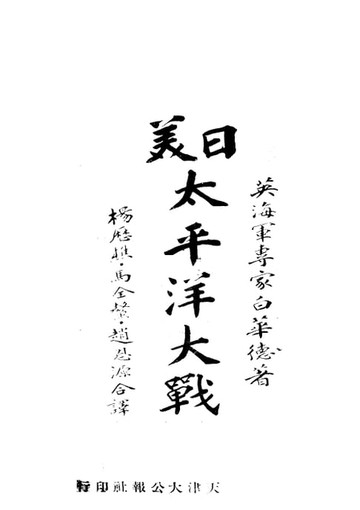 英海軍專家白華德著
日美
太平洋大戰
楊歷樵・馬全・趙恩源合譯
天津大公報社印行